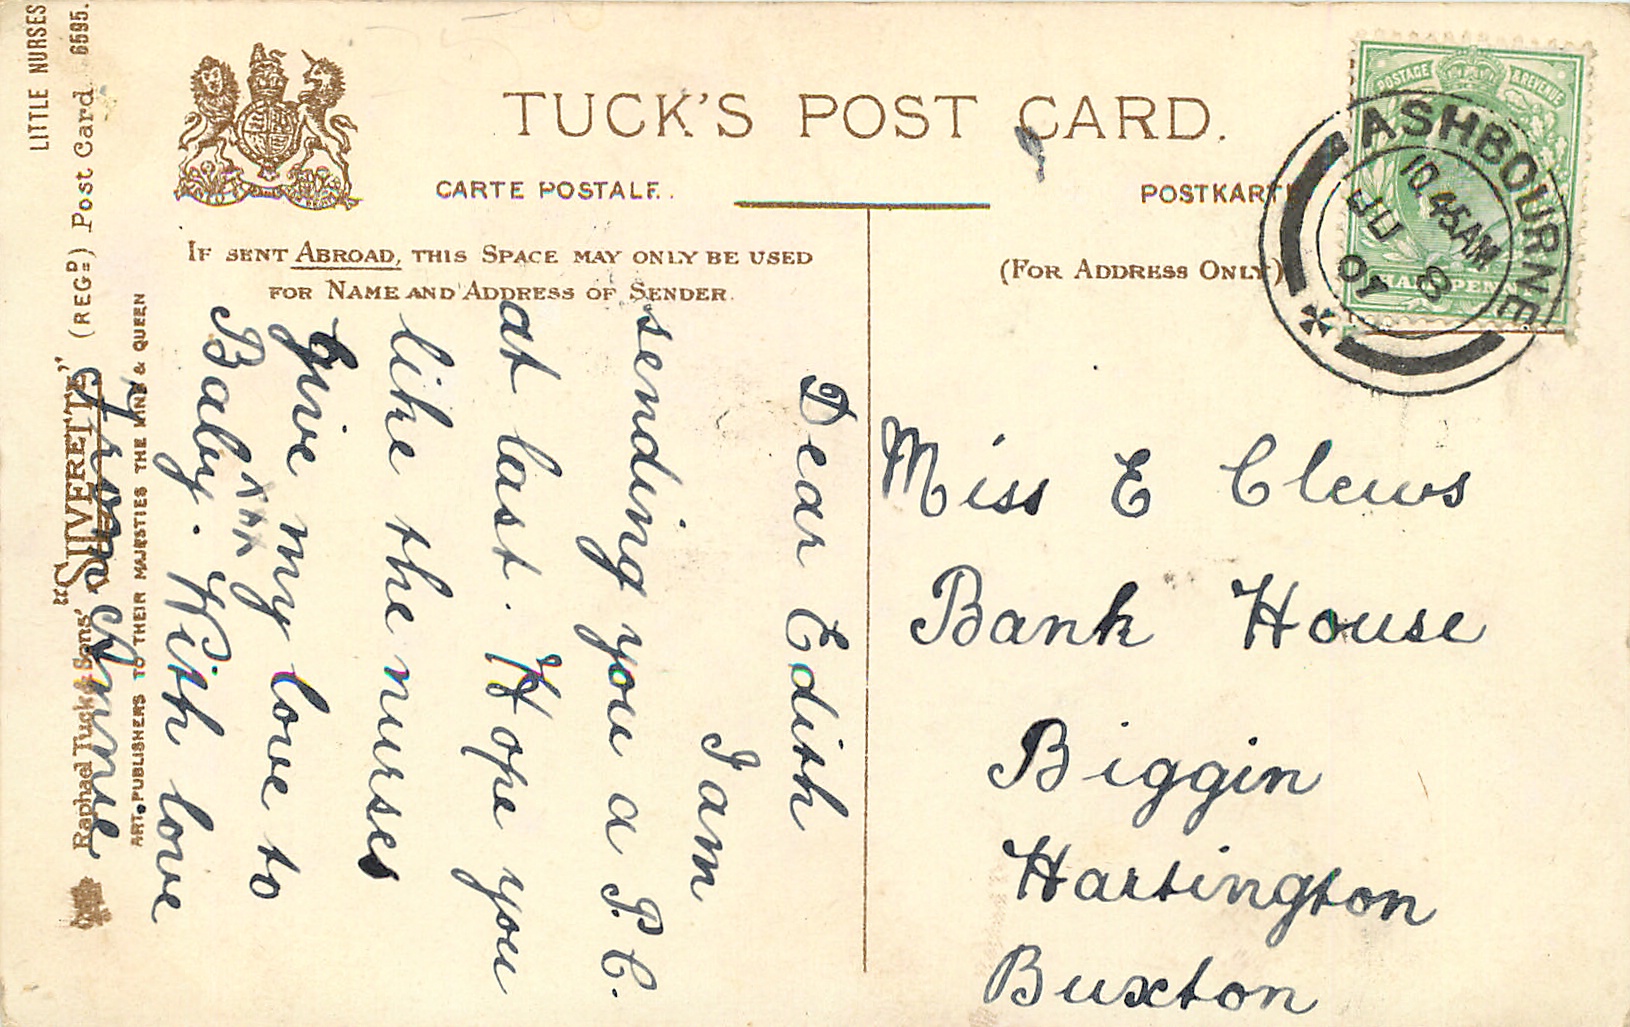 TUCK'S POST CARD.
CARTE POSTALE.
POSTKARTE
IF SENT ABROAD, THIS SPACE MAY ONLY BE USED
FOR NAME AND ADDRESS OF SENDER.
(FOR ADDRESS ONLY)
POSTAGE & REVENUE
HALFPENNY
ASHBOURNE
10.45AM
JU 8
07
LITTLE NURSES
"SILVERETTE" (REGD) Post Card 6595.
Raphael Tuck & Sons'
ART PUBLISHERS TO THEIR MAJESTIES THE KING & QUEEN
Dear Edith
I am
sending you a P.C.
at last. Hope you
like the nurses
Give my love to
Baby. xxx With love
from Annie
Miss E Clews
Bank House
Biggin
Hartington
Buxton